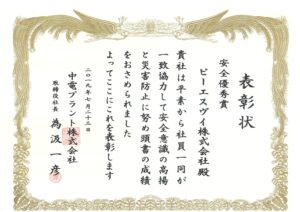 表彰状
安全優秀賞
ピーエスヴイ株式会社殿
貴社は平素から社員一同が
一致協力して安全意識の高揚
と災害防止に努め頭書の成績
をおさめられました
よってここにこれを表彰します
二〇一九年七月二十三日
中電プラント株式会社
取締役社長 為汲一彦